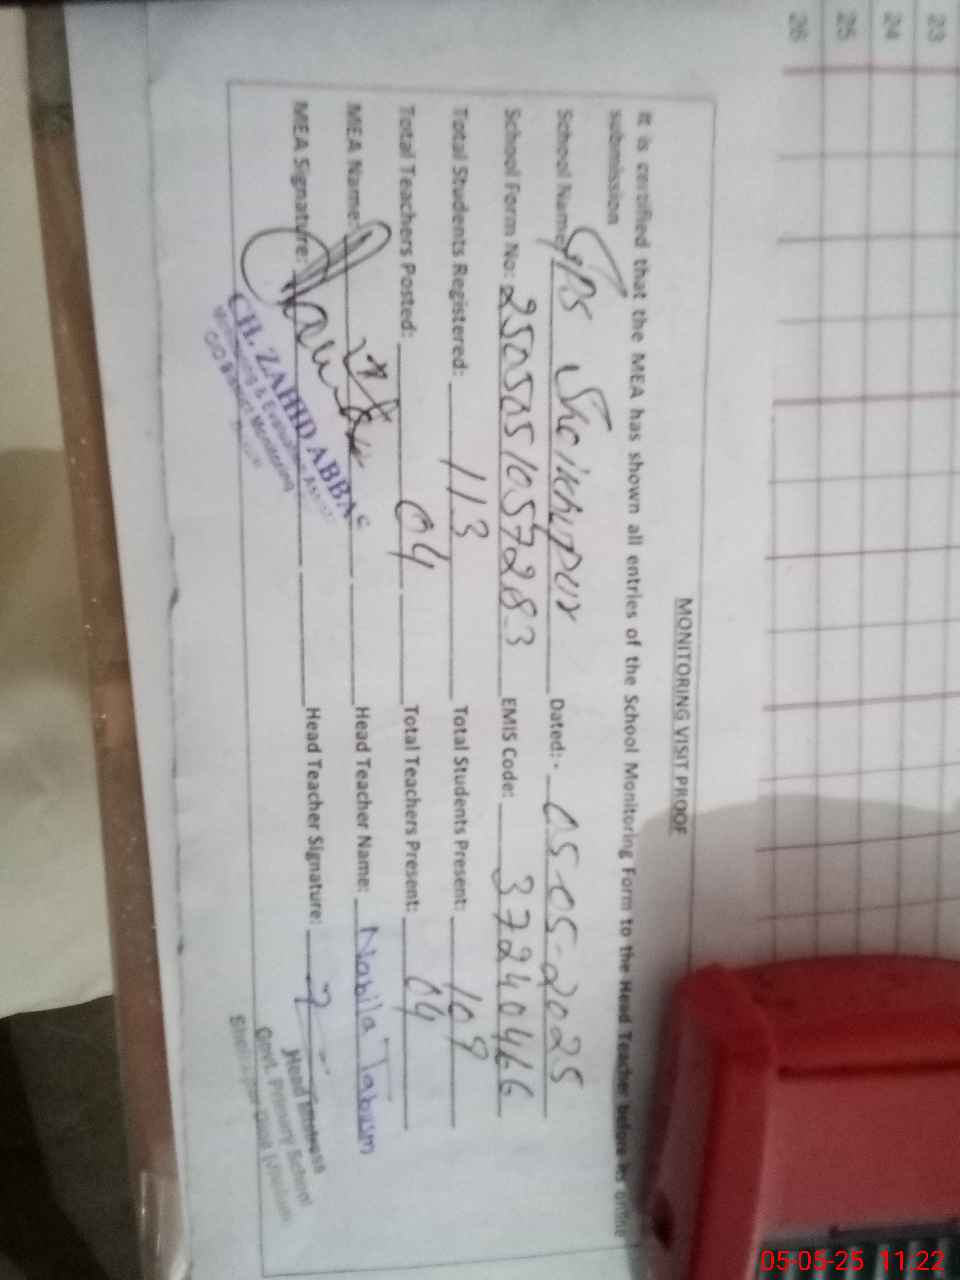 23
24
25
26
MONITORING VISIT PROOF
It is certified that the MEA has shown all entries of the School Monitoring Form to the Head Teacher before its online
submission
School Name: GPS Sheikhupur Dated:- 05-05-2025
School Form No: 2505051057283 EMIS Code: 37240466
Total Students Registered: 113 Total Students Present: 109
Total Teachers Posted: 04 Total Teachers Present: 04
MEA Name: Head Teacher Name: Nabila Tabasm
MEA Signature: Head Teacher Signature:
CH. ZAHID ABBAS
Monitoring & Evaluation Assist
O/O District Monitoring
Head
Govt. Primary School
05-05-25 11:22